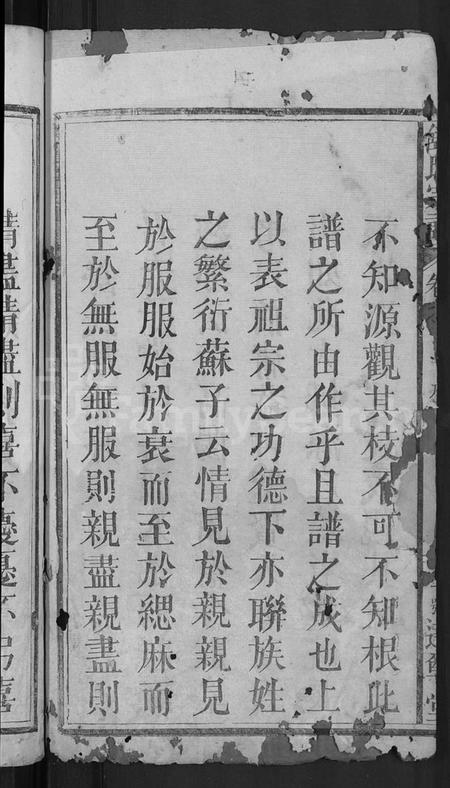 不知源觀其枝不可不知根此
譜之所由作乎且譜之成也上
以表祖宗之功德下亦聯族姓
之繁衍蘇子云情見於親親見
於服服始於衰而至於緦麻而
至於無服無服則親盡親盡則
情盡情盡則喜不慶憂不弔喜